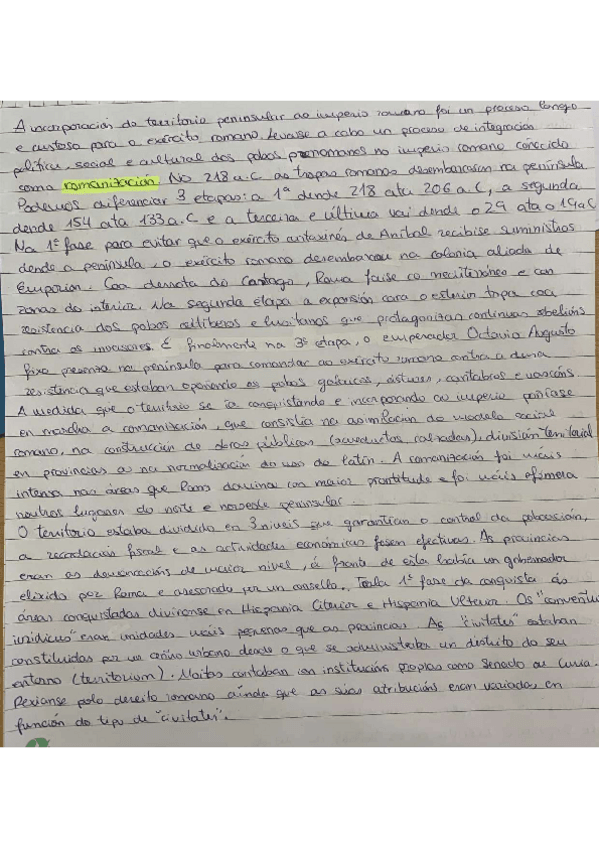 A incorporación do territorio peninsular ao imperio romano foi un proceso longo
e custoso para o exército romano. Levouse a cabo un proceso de integración
política, social e cultural dos pobos prerromanos no imperio romano coñecido
como romanización. No 218 a.C as tropas romanas desembarcaron na península
Podemos diferenciar 3 etapas: a 1ª dende 218 ata 206 a.C, a segunda
dende 154 ata 133 a.C e a terceira e última vai dende o 29 ata o 19 a.C
Na 1ª fase para evitar que o exército cartaxinés de Aníbal recibise suministros
dende a península, o exército romano desembarcou na colonia aliada de
Emporion. Coa derrota de Cartago, Roma faise co mediterráneo e con
zonas do interior. Na segunda etapa a expansión cara o interior topa coa
resistencia dos pobos celtiberos e lusitanos que protagonizan continuas rebelións
contra os invasores. E finalmente na 3ª etapa, o emperador Octavio Augusto
fixo presenza na península para comandar ao exército romano contra a dura
resistencia que estaban opoñendo os pobos galaicos, ástures, cántabros e vascóns.
A medida que o territorio se ía conquistando e incorporando ao imperio poñíase
en marcha a romanización, que consistía na asimilación do modelo social
romano, na construción de obras públicas (acueductos, calzadas), división territorial
en provincias e na normalización do uso do latín. A romanización foi máis
intensa nas áreas que Roma dominou con maior prontitude e foi máis efímera
noutros lugares do norte e noroeste peninsular.
O territorio estaba dividido en 3 niveis que garantían o control da poboación,
a recadación fiscal e as actividades económicas fosen efectivas. As provincias
eran as demarcacións de maior nivel, á fronte de esta había un gobernador
elixido por Roma e asesorado por un consello. Tras a 1ª fase da conquista ás
áreas conquistadas divíronse en Hispania Citerior e Hispania Ulterior. Os "conventus
iuridicus" eran unidades máis pequenas que as provincias. As "civitates" estaban
constituídas por un centro urbano dende o que se administraba un distrito do seu
entorno (territorium). Moitas contaban con institucións propias como Senado ou Curia.
Rexíanse polo dereito romano aínda que as súas atribucións eran variadas, en
función do tipo de "civitates".